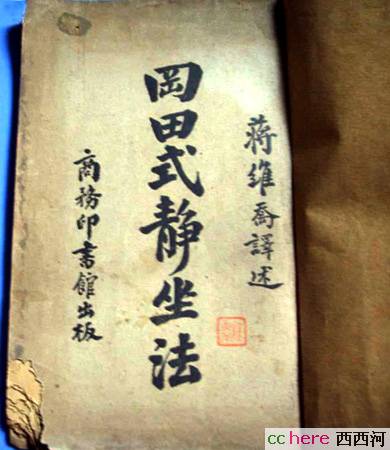 蒋維喬譯述
岡田式靜坐法
商務印書館出板
cchere 西西河